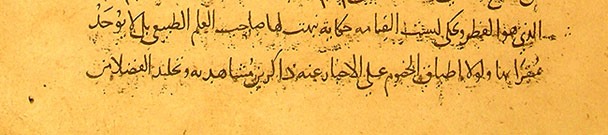 الذي هو القطر ويحكى لست القيامه حكايه بهت لها صاحب العلم الطبيعي بل لا يوجد
مقرا بها ولولا اطباق الخصوم على الاخبار عنه ذاكرين مشاهدته وتخليد الفضلا من